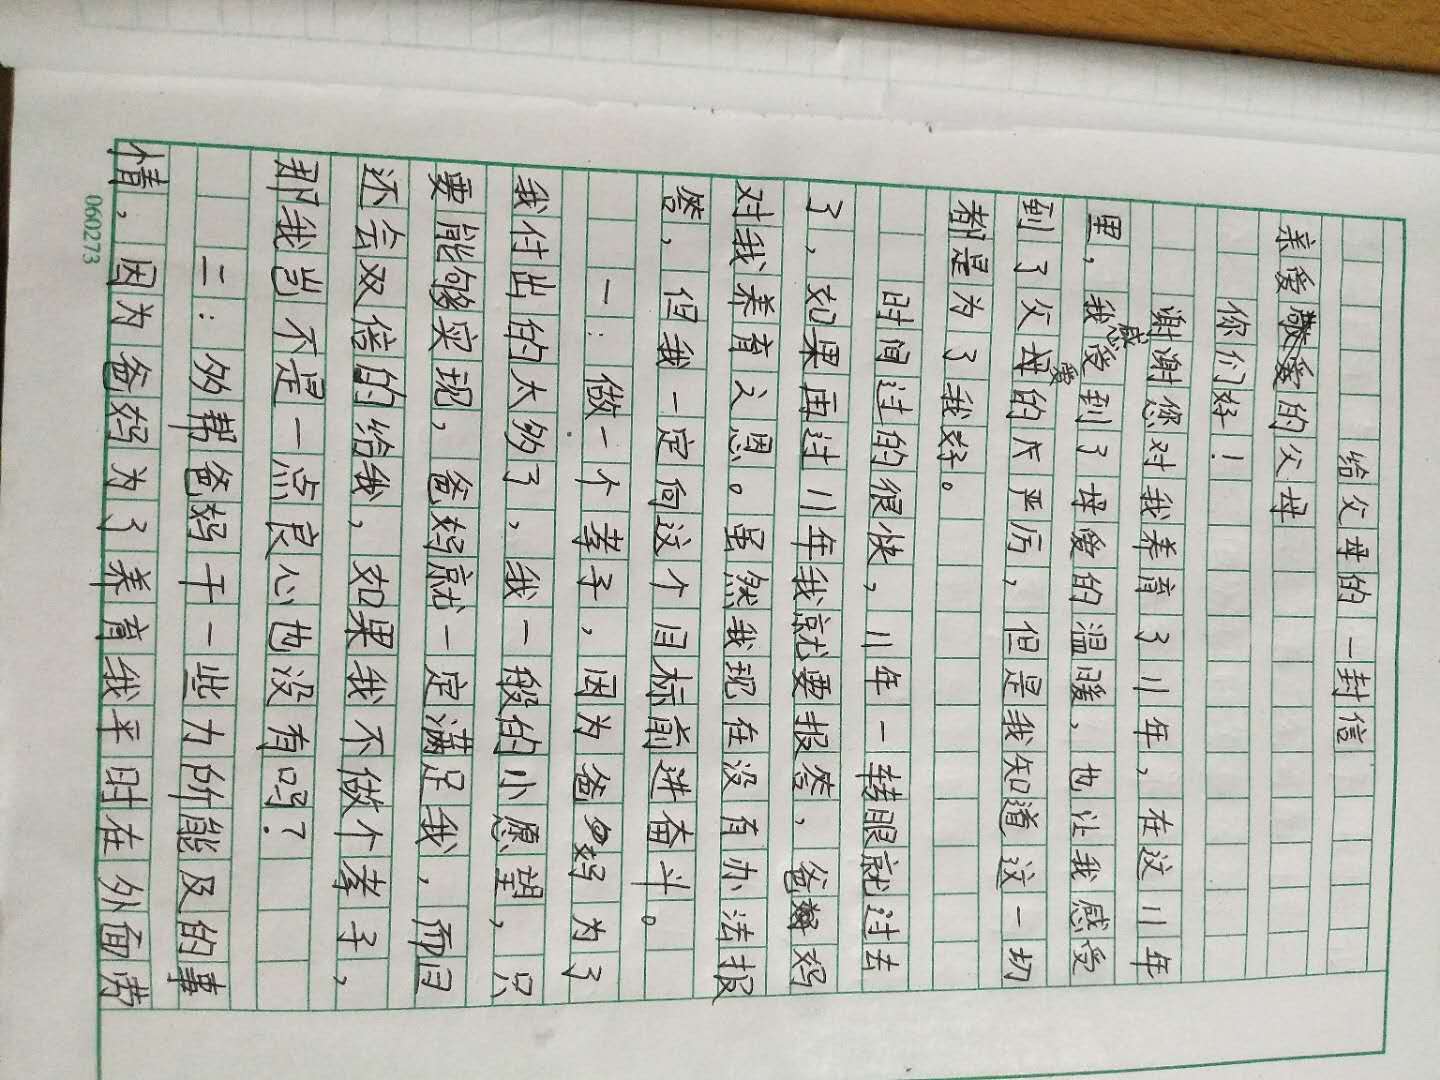 给父母的一封信
亲爱敬爱的父母
你们好！
谢谢您对我养育了11年，在这11年
里，我感受到了母爱的温暖，也让我感受
到了父爱的严厉，但是我知道这一切
都是为了我好。
时间过的很快，11年一转眼就过去
了，如果再过11年我就要报答，爸妈
对我养育之恩。虽然我现在没有办法报
答，但我一定向这个目标前进奋斗。
一：做一个孝子，因为爸妈为了
我付出的太多了，我一般的小愿望，只
要能够实现，爸妈就一定满足我，而且
还会双倍的给我，如果我不做个孝子，
那我岂不是一点良心也没有吗？
二：多帮爸妈干一些力所能及的事
情，因为爸妈为了养育我平时在外面劳
060273